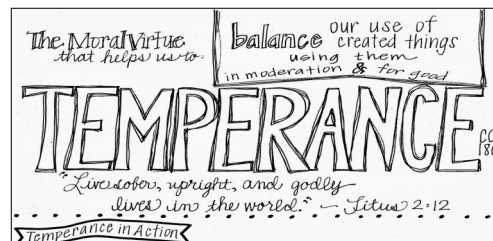 The Moral Virtue
that helps us to:
balance our use of
created things
using them
in moderation & for good
TEMPERANCE
"Live sober, upright, and godly
lives in the world." ~ Titus 2:12
Temperance in Action